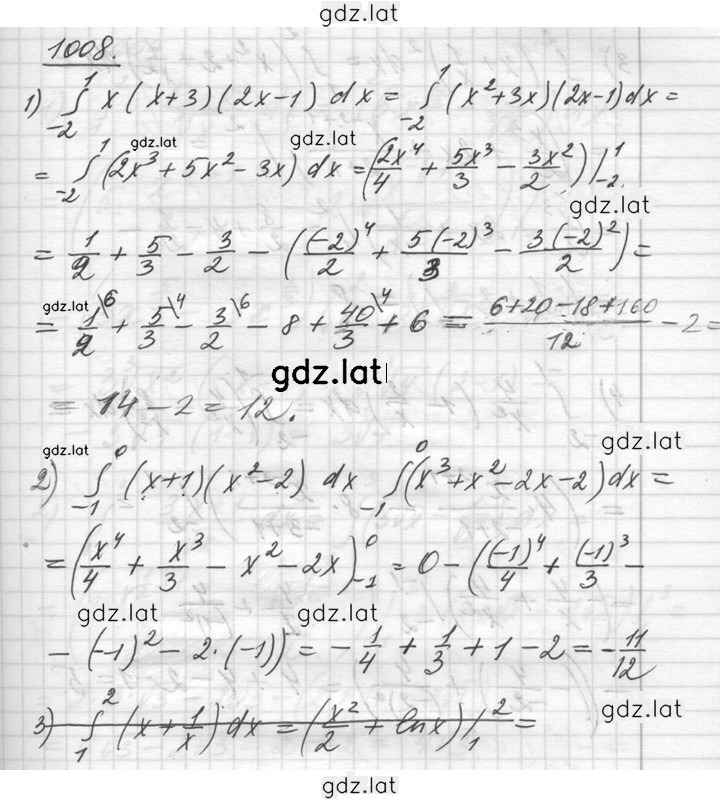 gdz.lat
1008.
1) ∫₋₂¹ x(x+3)(2x-1) dx = ∫₋₂¹ (x²+3x)(2x-1)dx =
gdz.lat
= ∫₋₂¹ (2x³+5x²-3x) dx = (2x⁴/4 + 5x³/3 - 3x²/2)|₋₂¹
gdz.lat
= 1/2 + 5/3 - 3/2 - ((-2)⁴/2 + 5(-2)³/3 - 3(-2)²/2) =
gdz.lat
= 1/2\⁶ + 5/3\⁴ - 3/2\⁶ - 8 + 40/3\⁴ + 6 = (6+20-18+160)/12 - 2 =
gdz.lat
= 14 - 2 = 12.
gdz.lat
gdz.lat
2) ∫₋₁⁰ (x+1)(x²-2) dx ∫₋₁⁰ (x³+x²-2x-2)dx =
= (x⁴/4 + x³/3 - x² - 2x)₋₁⁰ = 0 - ((-1)⁴/4 + (-1)³/3 -
gdz.lat gdz.lat
- (-1)² - 2·(-1)) = - 1/4 + 1/3 + 1 - 2 = - 11/12
gdz.lat
3) ∫₁² (x + 1/x) dx = (x²/2 + ln x)|₁² =
gdz.lat